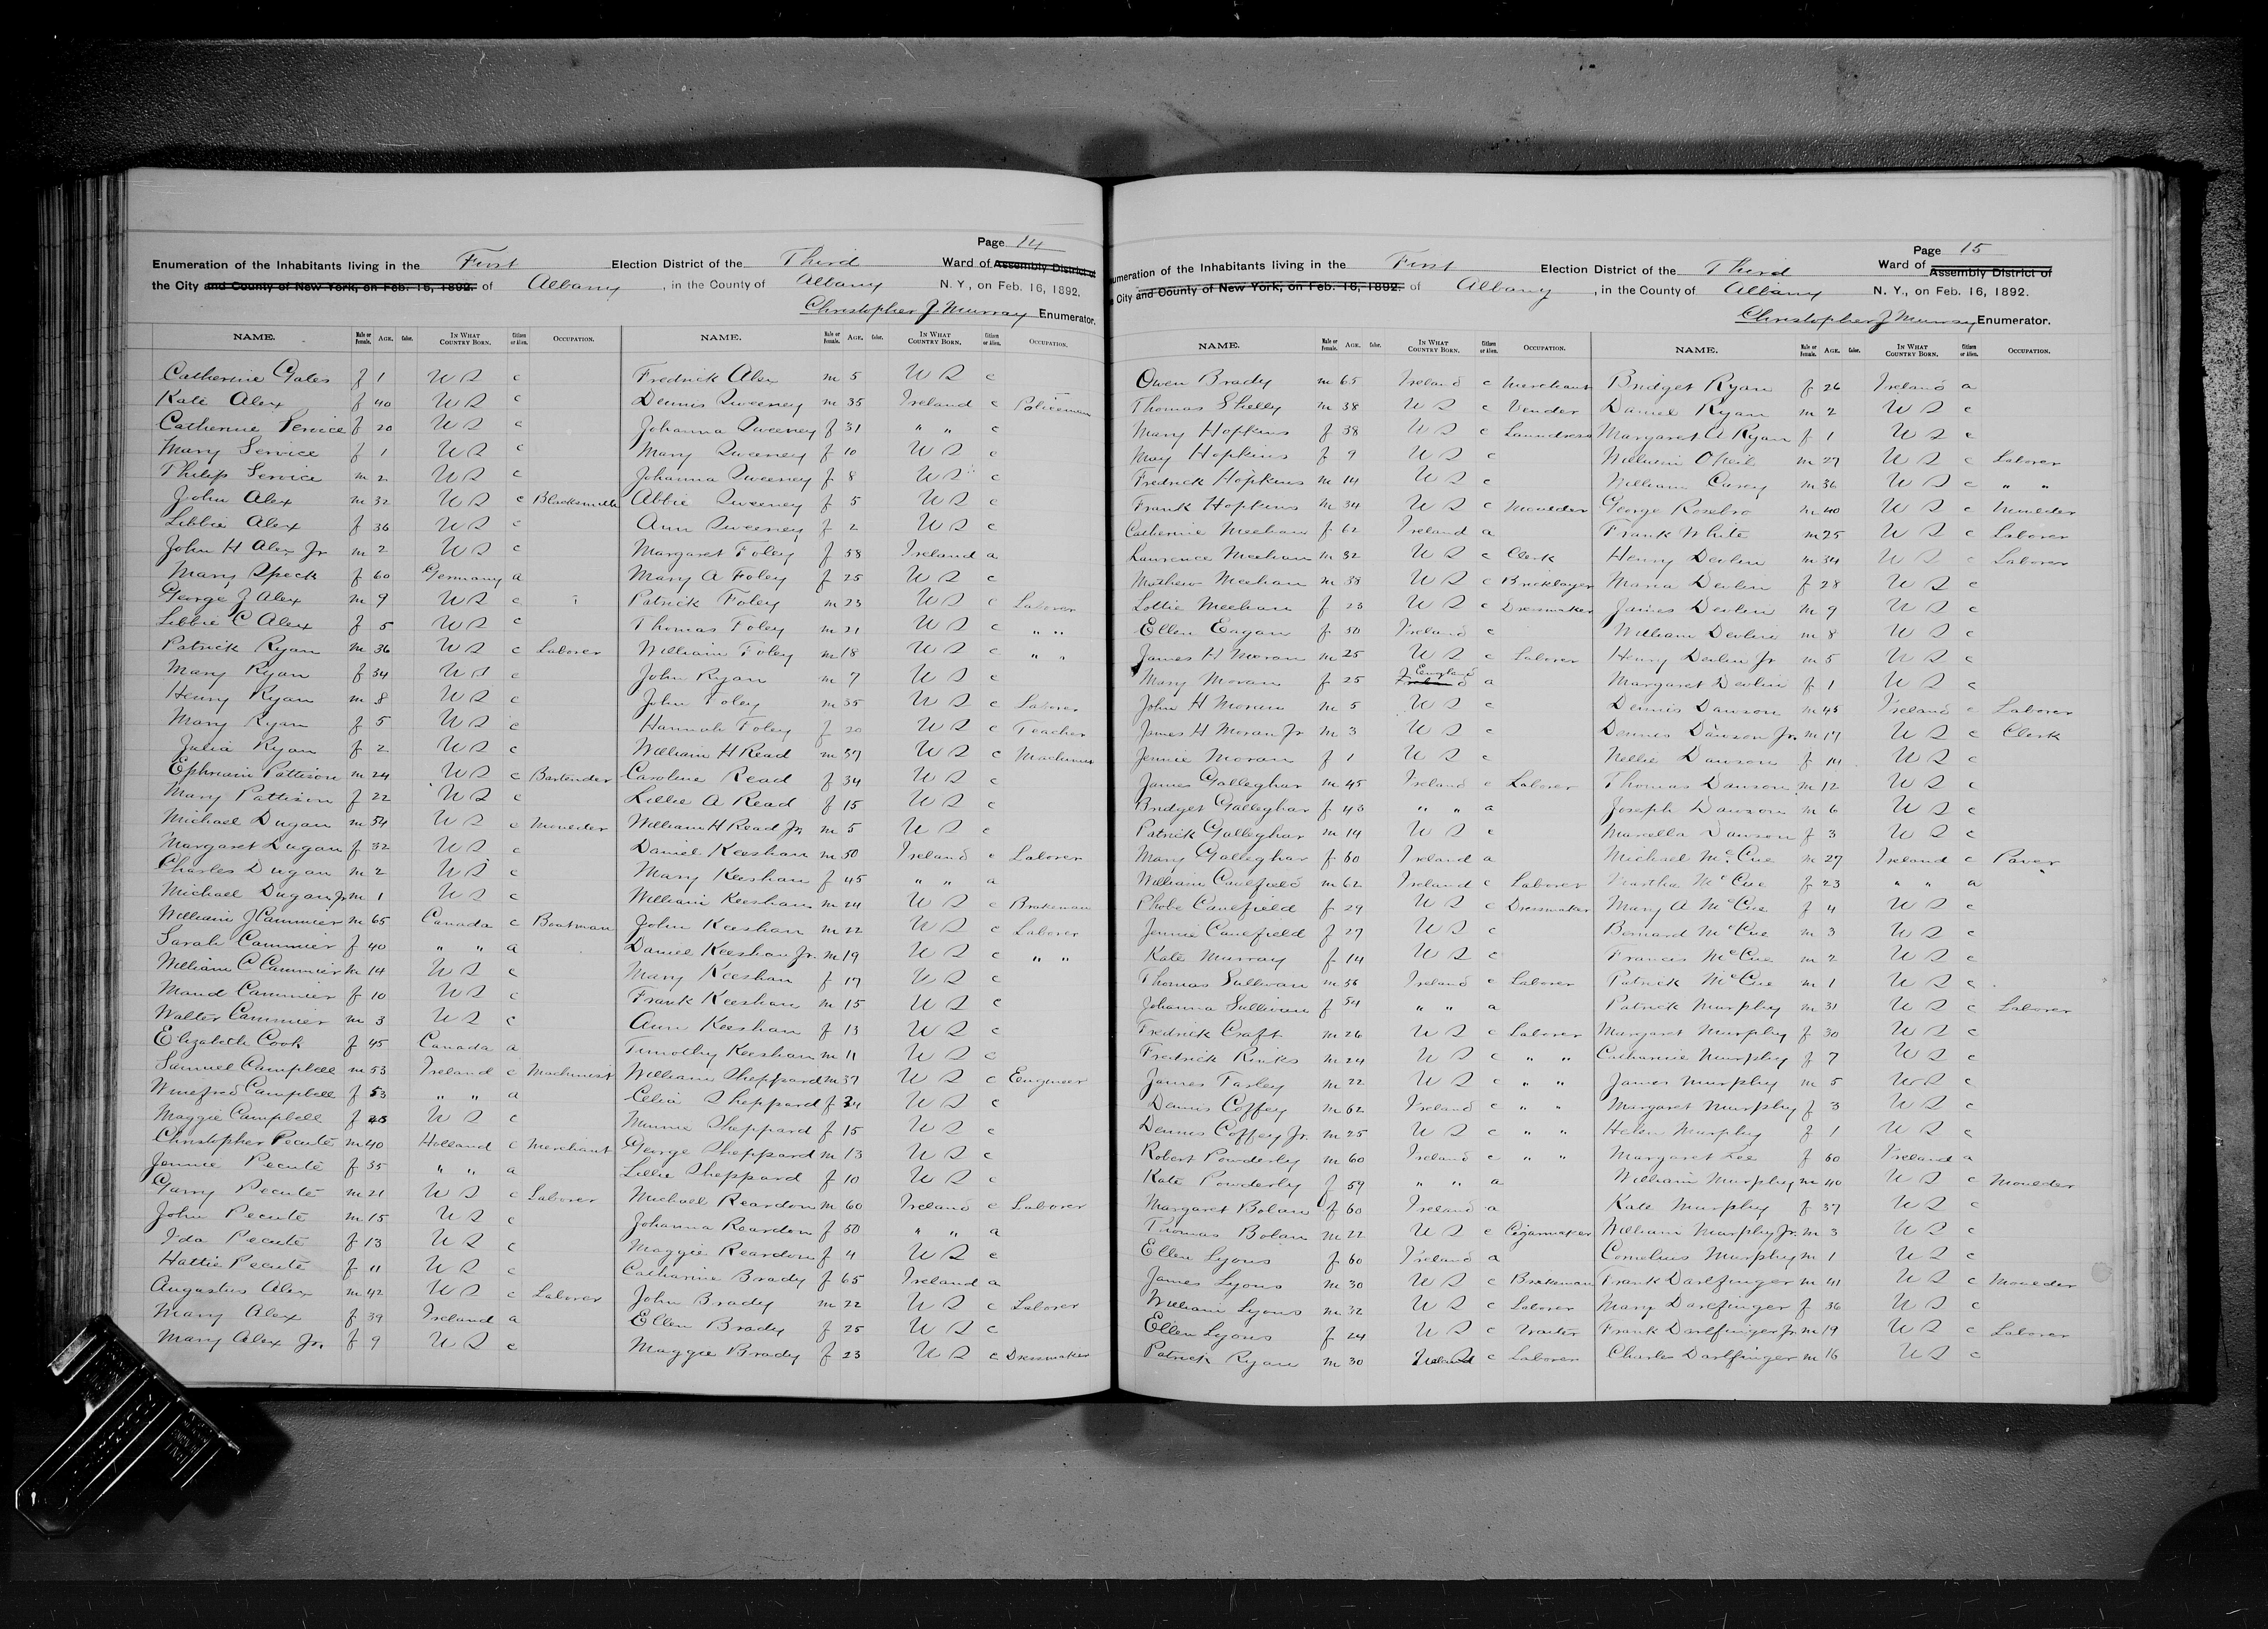 Page 14
Enumeration of the Inhabitants living in the First Election District of the Third Ward of Assembly District of
the City and County of New York, on Feb. 16, 1892. of Albany, in the County of Albany N. Y., on Feb. 16, 1892.
Christopher J Murray Enumerator.
NAME. Male or Female. AGE. Color. IN WHAT COUNTRY BORN. Citizen or Alien. OCCUPATION. NAME. Male or Female. AGE. Color. IN WHAT COUNTRY BORN. Citizen or Alien. OCCUPATION.
Catherine Gates f 1 U S c
Kate Alex f 40 U S c
Catherine Service f 20 U S c
Mary Service f 1 U S c
Philip Service m 2 U S c
John Alex m 32 U S c Blacksmith
Libbie Alex f 36 U S c
John H Alex Jr m 2 U S c
Mary Speck f 60 Germany a
George J Alex m 9 U S c
Libbie C Alex f 5 U S c
Patrick Ryan m 36 U S c Laborer
Mary Ryan f 34 U S c
Henry Ryan m 8 U S c
Mary Ryan f 5 U S c
Julia Ryan f 2 U S c
Ephriam Pattison m 24 U S c Bartender
Mary Pattison f 22 U S c
Michael Dugan m 54 U S c Moulder
Margaret Dugan f 32 U S c
Charles Dugan m 2 U S c
Michael Dugan Jr m 1 U S c
William J Cammier m 65 Canada c Boatman
Sarah Cammier f 40 " " a
William C Cammier m 14 U S c
Maud Cammier f 10 U S c
Walter Cammier m 3 U S c
Elizabeth Cook f 45 Canada a
Samuel Campbell m 53 Ireland c Machinist
Winefred Campbell f 53 " " a
Maggie Campbell f U S c
Christopher Pecute m 40 Holland c Merchant
Jennie Pecute f 35 " " a
Garry Pecute m 21 U S c Laborer
John Pecute m 15 U S c
Ida Pecute f 13 U S c
Hattie Pecute f 11 U S c
Augustus Alex m 42 U S c Laborer
Mary Alex f 39 Ireland a
Mary Alex Jr. f 9 U S c
Fredrick Alex m 5 U S c
Dennis Sweeney m 35 Ireland c Policeman
Johanna Sweeney f 31 " " c
Mary Sweeney f 10 U S c
Johanna Sweeney f 8 U S c
Abbie Sweeney f 5 U S c
Ann Sweeney f 2 U S c
Margaret Foley f 58 Ireland a
Mary A Foley f 25 U S c
Patrick Foley m 23 U S c Laborer
Thomas Foley m 21 U S c " "
William Foley m 18 U S c " "
John Ryan m 7 U S c
John Foley m 35 U S c Laborer
Hannah Foley f 20 U S c Teacher
William H Read m 37 U S c Machinist
Caroline Read f 34 U S c
Lillie A Read f 15 U S c
William H Read Jr. m 5 U S c
Daniel Keeshan m 50 Ireland c Laborer
Mary Keeshan f 45 " " a
William Keeshan m 24 U S c Brakeman
John Keeshan m 22 U S c Laborer
Daniel Keeshan Jr. m 19 U S c " "
Mary Keeshan f 17 U S c
Frank Keeshan m 15 U S c
Ann Keeshan f 13 U S c
Timothy Keeshan m 11 U S c
William Sheppard m 37 U S c Eengineer
Celia Sheppard f 34 U S c
Minnie Sheppard f 15 U S c
George Sheppard m 13 U S c
Lillie Sheppard f 10 U S c
Michael Reardon m 60 Ireland c Laborer
Johanna Reardon f 50 " " a
Maggie Reardon f 11 U S c
Catharine Brady f 65 Ireland a
John Brady m 22 U S c Laborer
Ellen Brady f 25 U S c
Maggie Brady f 23 U S c Dressmaker
Page 15
umeration of the Inhabitants living in the First Election District of the Third Ward of Assembly District of
City and County of New York, on Feb. 16, 1892. of Albany, in the County of Albany N. Y., on Feb. 16, 1892.
Christopher J Murray Enumerator.
NAME. Male or Female. AGE. Color. IN WHAT COUNTRY BORN. Citizen or Alien. OCCUPATION. NAME. Male or Female. AGE. Color. IN WHAT COUNTRY BORN. Citizen or Alien. OCCUPATION.
Owen Brady m 65 Ireland c Merchant
Thomas Shelly m 38 U S c Vender
Mary Hopkins f 38 U S c Laundress
May Hopkins f 9 U S c
Fredrick Hopkins m 14 U S c
Frank Hopkins m 34 U S c Moulder
Catherine Meehan f 62 Ireland a
Lawrence Meehan m 32 U S c Clerk
Mathew Meehan m 38 U S c Bricklayer
Lottie Meehan f 23 U S c Dressmaker
Ellen Eagan f 50 Ireland c
James H Moran m 25 U S c Laborer
Mary Moran f 25 England a
John H Moran m 5 U S c
James H Moran Jr m 3 U S c
Jennie Moran f 1 U S c
James Galleghar m 45 Ireland c Laborer
Bridget Galleghar f 43 " " a
Patrick Galleghar m 14 U S c
Mary Galleghar f 60 Ireland a
William Caulfield m 62 Ireland c Laborer
Phobe Caulfield f 29 U S c Dressmaker
Jennie Caulfield f 27 U S c
Kate Murray f 14 U S c
Thomas Sullivan m 56 Ireland c Laborer
Johanna Sullivan f 54 " " a
Fredrick Craft m 26 U S c Laborer
Fredrick Rinks m 24 U S c " "
James Farley m 22 U S c " "
Dennis Coffey m 62 Ireland c " "
Dennis Coffey Jr. m 25 U S c " "
Robert Powderly m 60 Ireland c " "
Kate Powderly f 59 " " a
Margaret Bolan f 60 Ireland a
Thomas Bolan m 22 U S c Cigarmaker
Ellen Lyons f 60 Ireland a
James Lyons m 30 U S c Brakeman
William Lyons m 32 U S c Laborer
Ellen Lyons f 24 U S c Waiter
Patrick Ryan m 30 Ireland c Laborer
Bridget Ryan f 26 Ireland a
Daniel Ryan m 2 U S c
Margaret A Ryan f 1 U S c
William ONeil m 27 U S c Laborer
William Casey m 36 U S c " "
George Rosebro m 40 U S c Moulder
Frank White m 25 U S c Laborer
Henry Devlin m 34 U S c Laborer
Maria Devlin f 28 U S c
James Devlin m 9 U S c
William Devlin m 8 U S c
Henry Devlin Jr m 5 U S c
Margaret Devlin f 1 U S c
Dennis Dawson m 45 Ireland c Laborer
Dennis Dawson Jr. m 17 U S c Clerk
Nellie Dawson f 14 U S c
Thomas Dawson m 12 U S c
Joseph Dawson m 6 U S c
Marcella Dawson f 3 U S c
Michael McCue m 27 Ireland c Paver
Martha McCue f 23 " " a
Mary A McCue f 4 U S c
Bernard McCue m 3 U S c
Frances McCue m 2 U S c
Patrick McCue m 1 U S c
Patrick Murphy m 31 U S c Laborer
Margaret Murphy f 30 U S c
Catharine Murphy f 7 U S c
James Murphy m 5 U S c
Margaret Murphy f 3 U S c
Helen Murphy f 1 U S c
Margaret Lee f 60 Ireland a
William Murphy m 40 U S c Moulder
Kate Murphy f 37 U S c
William Murphy Jr. m 3 U S c
Cornelius Murphy m 1 U S c
Frank Darlfinger m 41 U S c Moulder
Mary Darlfinger f 36 U S c
Frank Darlfinger Jr. m 19 U S c Laborer
Charles Darlfinger m 16 U S c